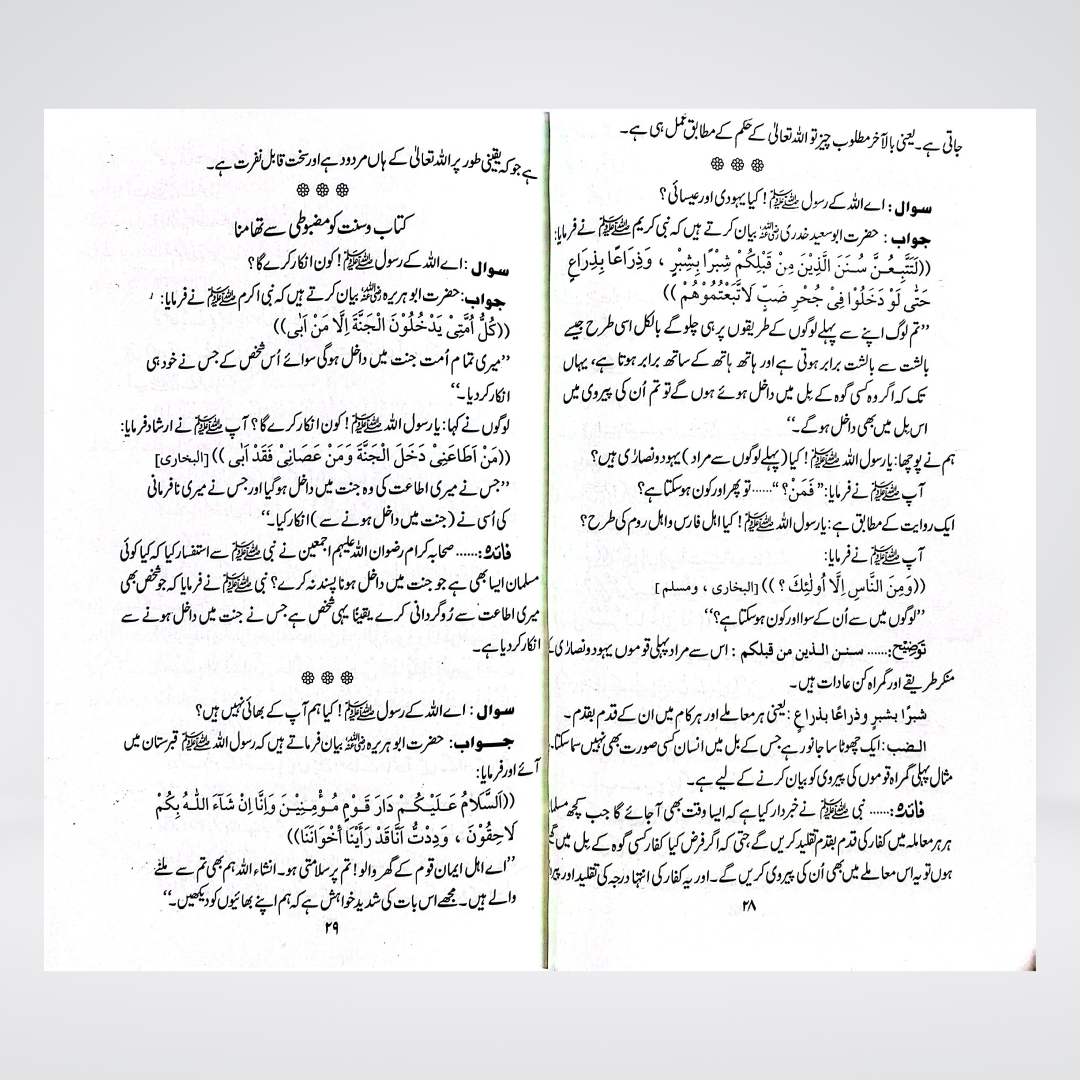 جاتی ہے۔ یعنی بالآخر مطلوب چیز تو اللہ تعالیٰ کے حکم کے مطابق عمل ہی ہے۔
❁ ❁ ❁
سوال : اے اللہ کے رسول ﷺ! کیا یہودی اور عیسائی؟
جواب : حضرت ابو سعید خدری رضی اللہ عنہ بیان کرتے ہیں کہ نبی کریم ﷺ نے فرمایا:
((لَتَتَّبِعُنَّ سُنَنَ الَّذِيْنَ مِنْ قَبْلِكُمْ شِبْرًا بِشِبْرٍ ، وَذِرَاعًا بِذِرَاعٍ
حَتّٰى لَوْ دَخَلُوْا فِىْ جُحْرِ ضَبٍّ لَاتَّبَعْتُمُوْهُمْ ))
’’تم لوگ اپنے سے پہلے لوگوں کے طریقوں پر ہی چلو گے بالکل اسی طرح جیسے
بالشت سے بالشت برابر ہوتی ہے اور ہاتھ ہاتھ کے ساتھ برابر ہوتا ہے، یہاں
تک کہ اگر وہ کسی گوہ کے بل میں داخل ہوئے ہوں گے تو تم اُن کی پیروی میں
اس بل میں بھی داخل ہو گے۔‘‘
ہم نے پوچھا: یارسول اللہ ﷺ! کیا (پہلے لوگوں سے مراد) یہود ونصاریٰ ہیں؟
آپ ﷺ نے فرمایا: ’’فَمَنْ؟ ‘‘...... تو پھر اور کون ہوسکتا ہے؟
ایک روایت کے مطابق ہے: یارسول اللہ ﷺ! کیا اہل فارس واہل روم کی طرح؟
آپ ﷺ نے فرمایا:
((وَمِنَ النَّاسِ اِلَّا اُولٰئِكَ ؟ )) [البخاری ، ومسلم]
’’لوگوں میں سے اُن کے سوا اور کون ہوسکتا ہے؟‘‘
توضیح:...... سنن الذین من قبلکم : اس سے مراد پہلی قوموں یہود ونصاریٰ کے
منکر طریقے اور گمراہ کن عادات ہیں۔
شبرًا بشبرٍ وذراعًا بذراعٍ : یعنی ہر معاملے اور ہر کام میں ان کے قدم بقدم۔
الضب : ایک چھوٹا سا جانور ہے جس کے بل میں انسان کسی صورت بھی نہیں سما سکتا۔
مثال پہلی گمراہ قوموں کی پیروی کو بیان کرنے کے لیے ہے۔
فائدہ:...... نبی ﷺ نے خبردار کیا ہے کہ ایسا وقت بھی آجائے گا جب کچھ
ہر ہر معاملہ میں کفار کی قدم بقدم تقلید کریں گے، حتی کہ اگر فرض کیا کفار کسی گوہ کے بل میں
ہوں تو یہ اس معاملے میں بھی اُن کی پیروی کریں گے۔ اور یہ کفار کی انتہا درجہ کی تقلید اور
۲۸
ہے جو کہ یقینی طور پر اللہ تعالیٰ کے ہاں مردود ہے اور سخت قابل نفرت ہے۔
❁ ❁ ❁
کتاب وسنت کو مضبوطی سے تھامنا
سوال : اے اللہ کے رسول ﷺ! کون انکار کرے گا؟
جواب: حضرت ابو ہریرہ رضی اللہ عنہ بیان کرتے ہیں کہ نبی اکرم ﷺ نے فرمایا:
((كُلُّ اُمَّتِىْ يَدْخُلُوْنَ الْجَنَّةَ اِلَّا مَنْ اَبٰى))
’’میری تمام اُمت جنت میں داخل ہوگی سوائے اُس شخص کے جس نے خود ہی
انکار کردیا۔‘‘
لوگوں نے کہا: یارسول اللہ ﷺ! کون انکار کرے گا؟ آپ ﷺ نے ارشاد فرمایا:
((مَنْ اَطَاعَنِىْ دَخَلَ الْجَنَّةَ وَمَنْ عَصَانِىْ فَقَدْ اَبٰى )) [البخاری]
’’جس نے میری اطاعت کی وہ جنت میں داخل ہوگیا اور جس نے میری نافرمانی
کی اُسی نے (جنت میں داخل ہونے سے) انکار کیا۔‘‘
فائدہ:...... صحابہ کرام رضوان اللہ علیہم اجمعین نے نبی ﷺ سے استفسار کیا کہ کیا کوئی
مسلمان ایسا بھی ہے جو جنت میں داخل ہونا پسند نہ کرے؟ نبی ﷺ نے فرمایا کہ جو شخص بھی
میری اطاعت سے رُوگردانی کرے یقینًا یہی شخص ہے جس نے جنت میں داخل ہونے سے
انکار کردیا ہے۔
❁ ❁ ❁
سوال : اے اللہ کے رسول ﷺ! کیا ہم آپ کے بھائی نہیں ہیں؟
جواب: حضرت ابو ہریرہ رضی اللہ عنہ بیان فرماتے ہیں کہ رسول اللہ ﷺ قبرستان میں
آئے اور فرمایا:
((اَلسَّلَامُ عَلَيْكُمْ دَارَ قَوْمٍ مُؤْمِنِيْنَ وَاِنَّا اِنْ شَآءَ اللّٰهُ بِكُمْ
لَاحِقُوْنَ ، وَدِدْتُّ اَنَّاقَدْ رَأَيْنَا أُخْوَانَنَا))
’’اے اہل ایمان قوم کے گھر والو! تم پر سلامتی ہو۔ انشاء اللہ ہم بھی تم سے ملنے
والے ہیں۔ مجھے اس بات کی شدید خواہش ہے کہ ہم اپنے بھائیوں کو دیکھیں۔‘‘
۲۹